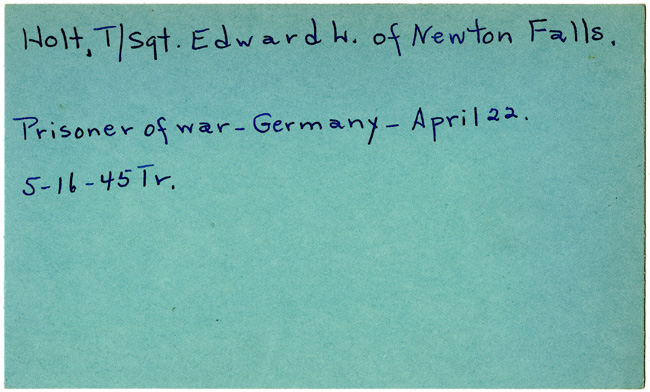 Holt, T/Sgt. Edward W. of Newton Falls.
Prisoner of war - Germany - April 22.
5-16-45 Tr.